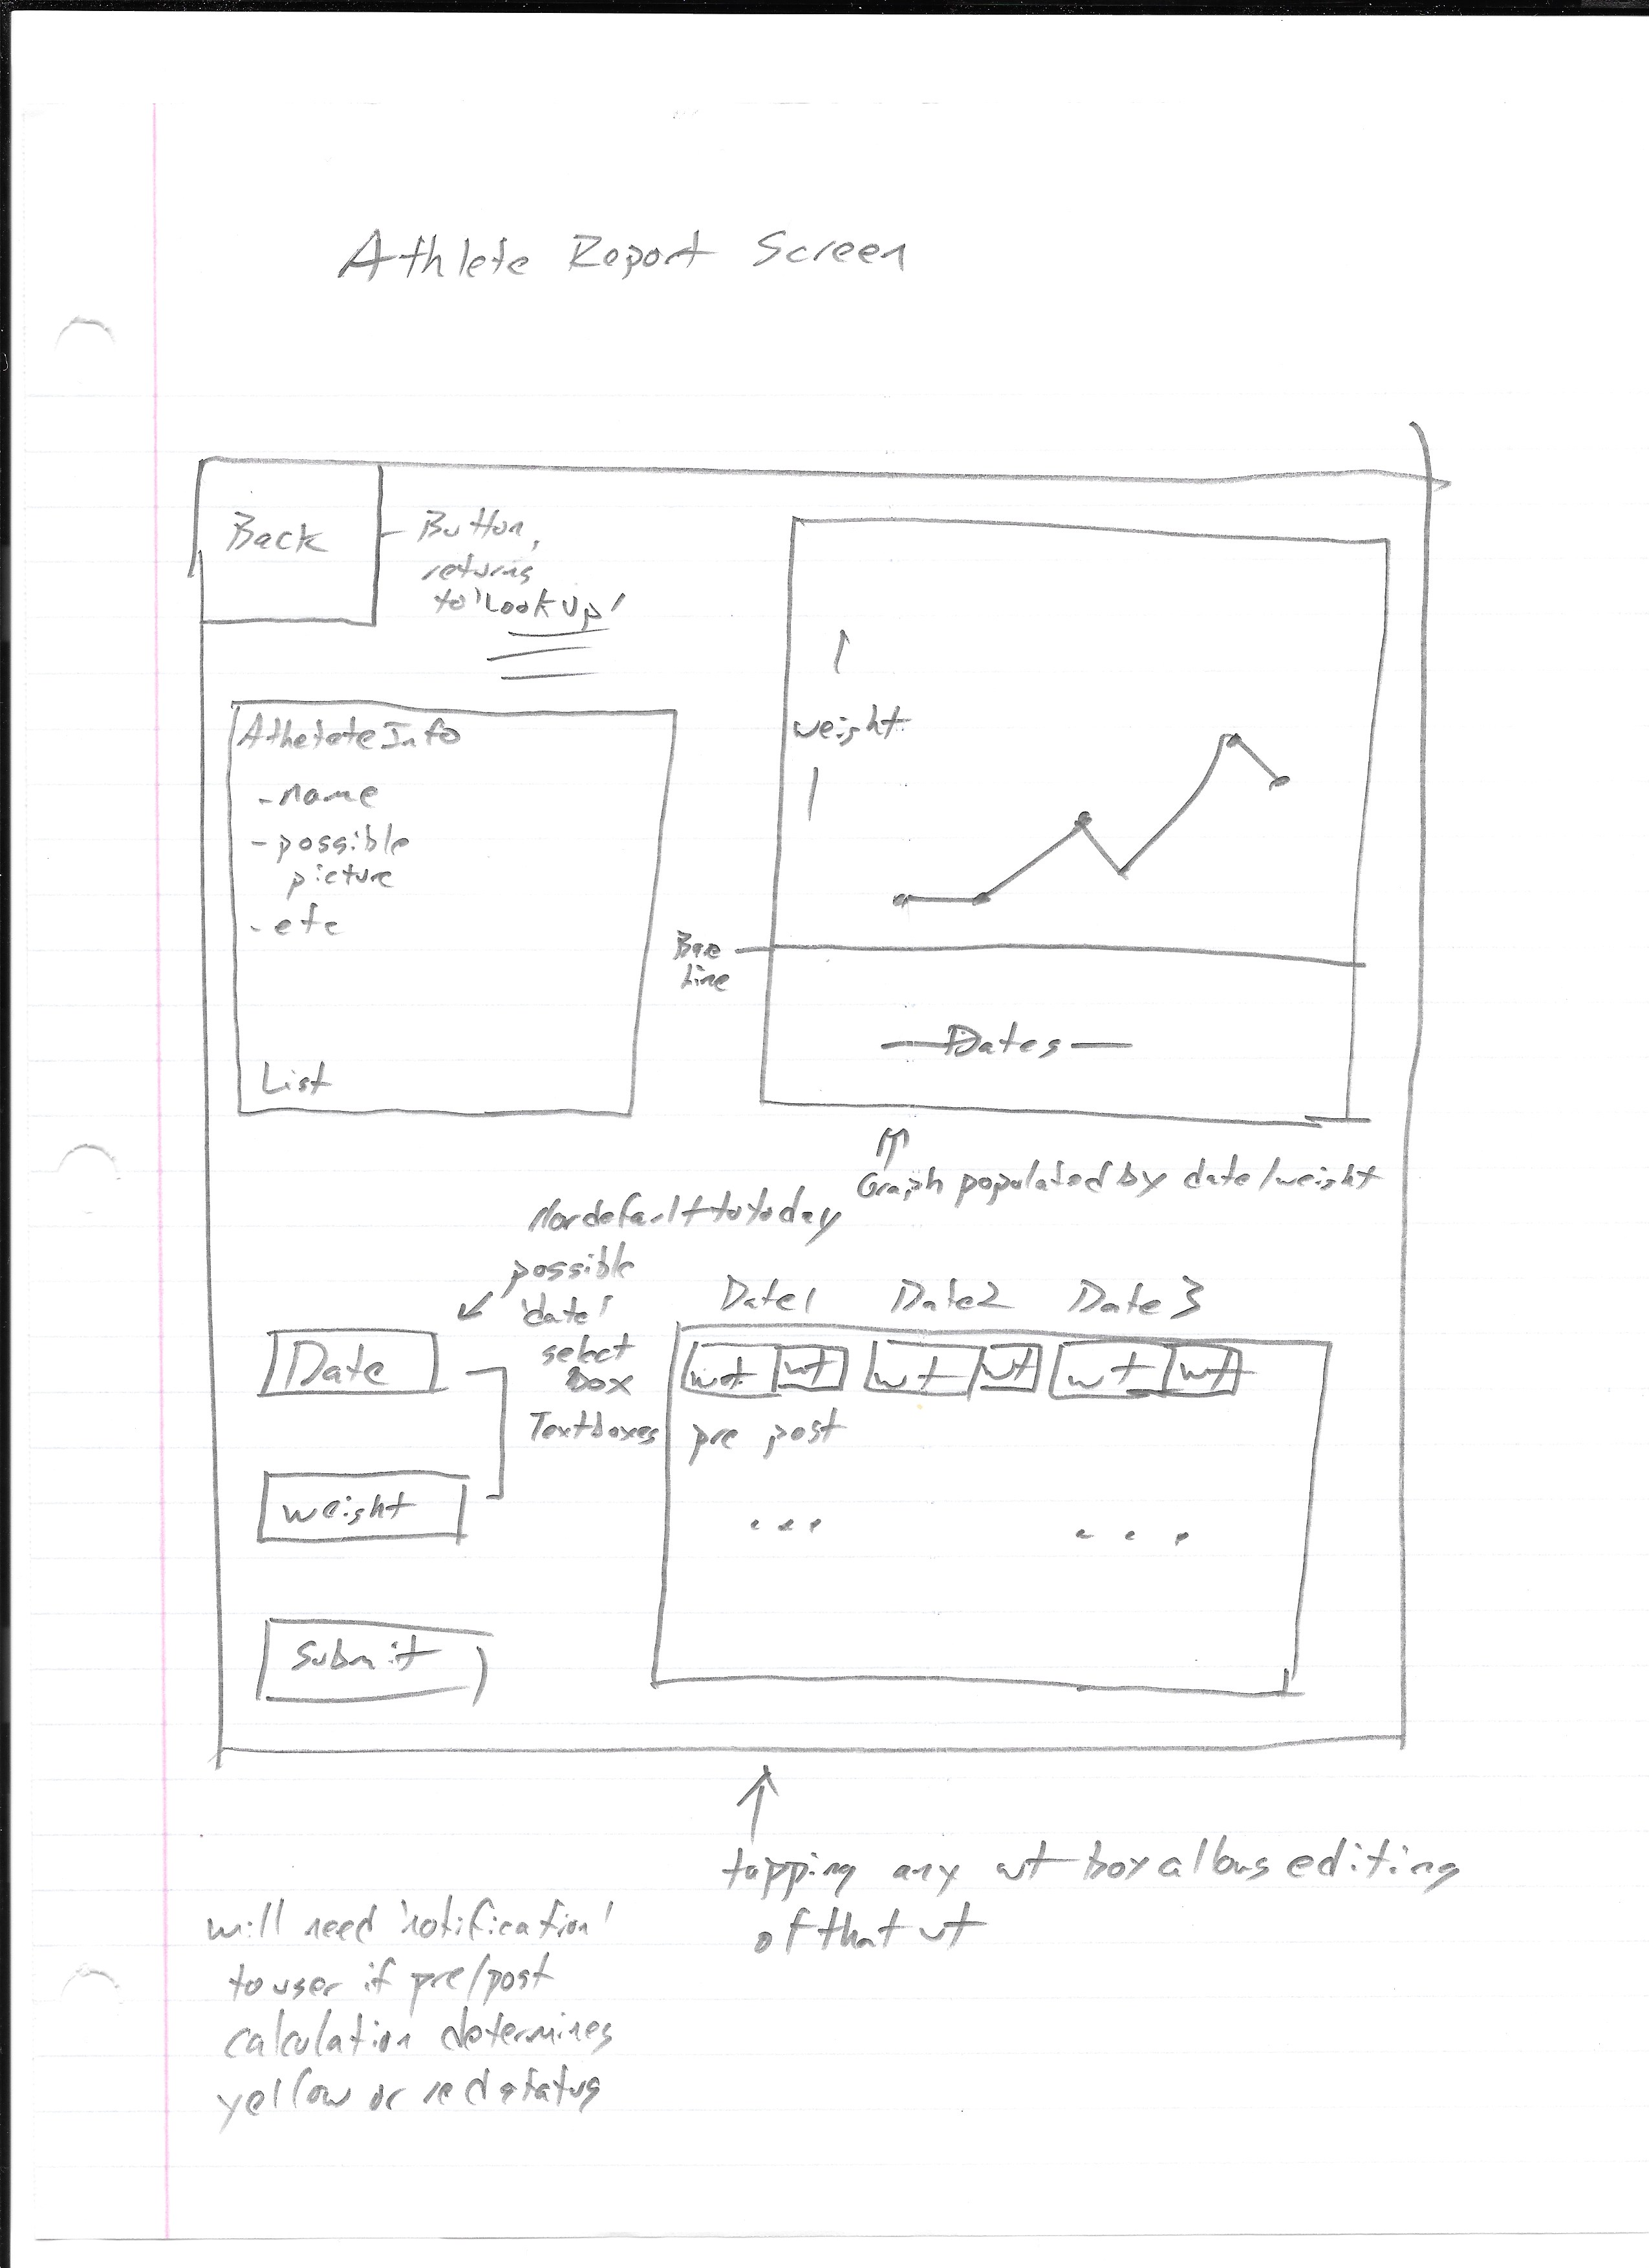 Athlete Report Screen
Back
Button,
returns
to 'Look up'
Athetete Info
- name
- possible
picture
- etc
List
weight
Base
Line
Dates
Graph populated by date/weight
default to today
possible
'date'
select
Box
Textboxes
Date
weight
Submit
Date1 Date2 Date3
wt wt wt wt wt wt
pre post
...
...
tapping any wt box allows editing
of that wt
will need 'notification'
to user if pre/post
calculation determines
yellow or red status